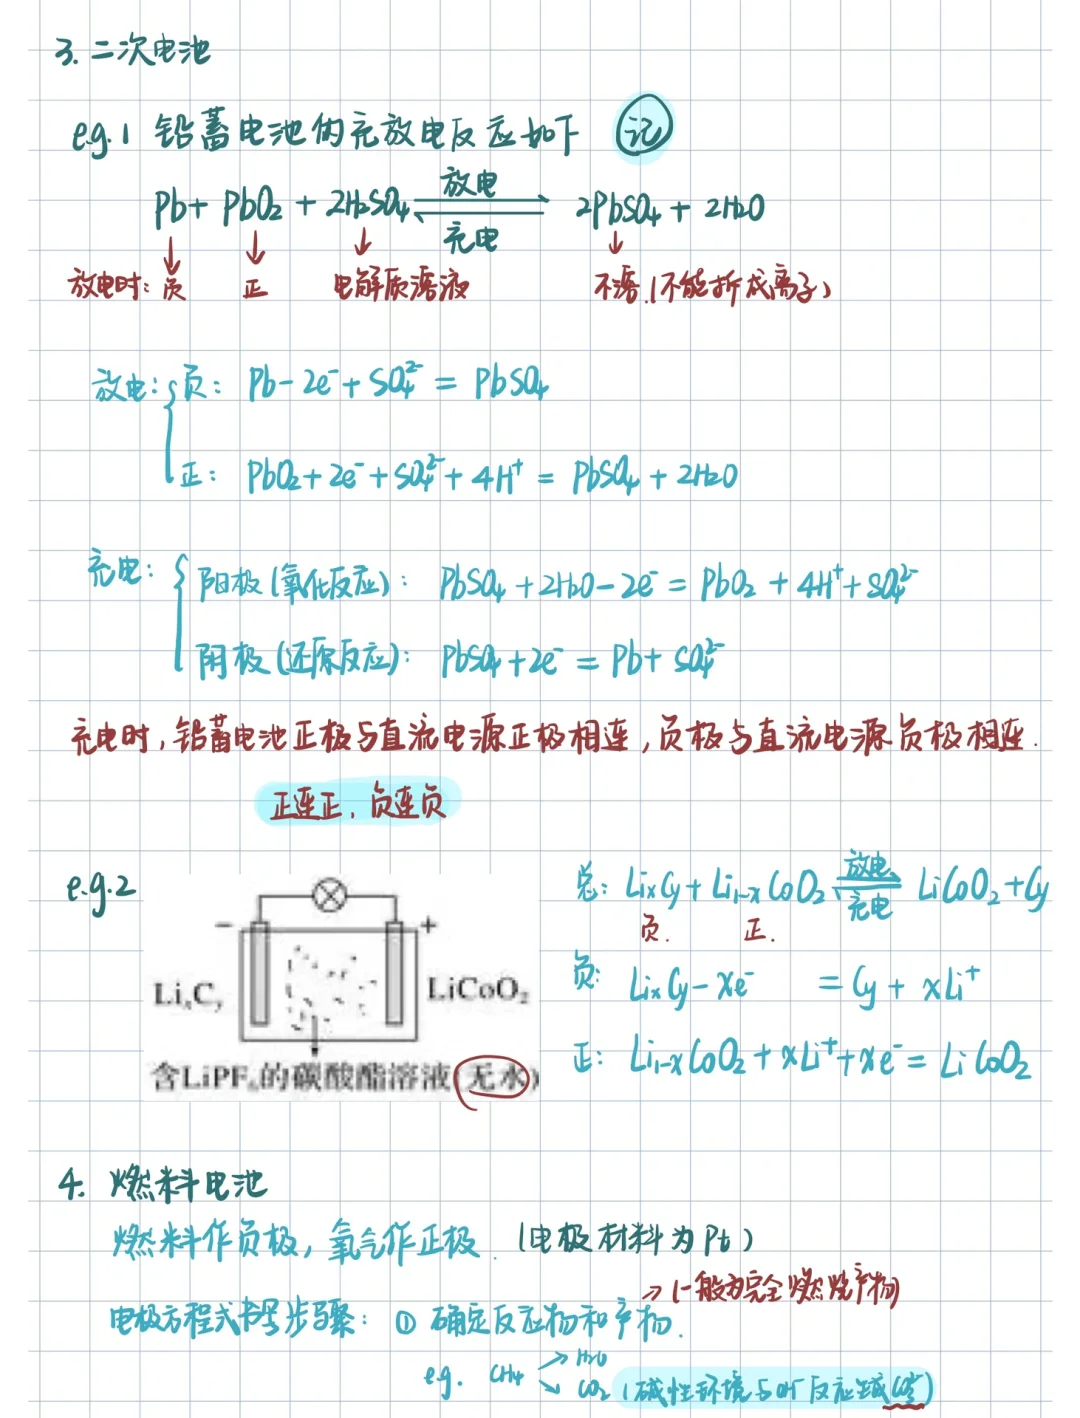 3. 二次电池
e.g.1 铅蓄电池的充放电反应如下 记
放电
Pb + PbO₂ + 2H₂SO₄ ⇌ 2PbSO₄ + 2H₂O
充电
放电时: 负 正 电解质溶液 不溶.(不能拆成离子)
放电: { 负: Pb - 2e⁻ + SO₄²⁻ = PbSO₄
正: PbO₂ + 2e⁻ + SO₄²⁻ + 4H⁺ = PbSO₄ + 2H₂O
充电: { 阳极 (氧化反应): PbSO₄ + 2H₂O - 2e⁻ = PbO₂ + 4H⁺ + SO₄²⁻
阴极 (还原反应): PbSO₄ + 2e⁻ = Pb + SO₄²⁻
充电时, 铅蓄电池正极与直流电源正极相连, 负极与直流电源负极相连.
正连正, 负连负
e.g.2
− +
LiₓCᵧ LiCoO₂
含LiPF₆的碳酸酯溶液(无水)
放电
总: LiₓCy + Li₁₋ₓCoO₂ ⇌ LiCoO₂ + Cy
充电
负. 正.
负: LiₓCy - xe⁻ = Cy + xLi⁺
正: Li₁₋ₓCoO₂ + xLi⁺ + xe⁻ = LiCoO₂
4. 燃料电池
燃料作负极, 氧气作正极. (电极材料为Pt)
→ (一般为完全燃烧产物)
电极方程式书写步骤: ① 确定反应物和产物.
e.g. CH₄ → H₂O
↘ CO₂ (碱性环境与OH⁻反应生成CO₃²⁻)